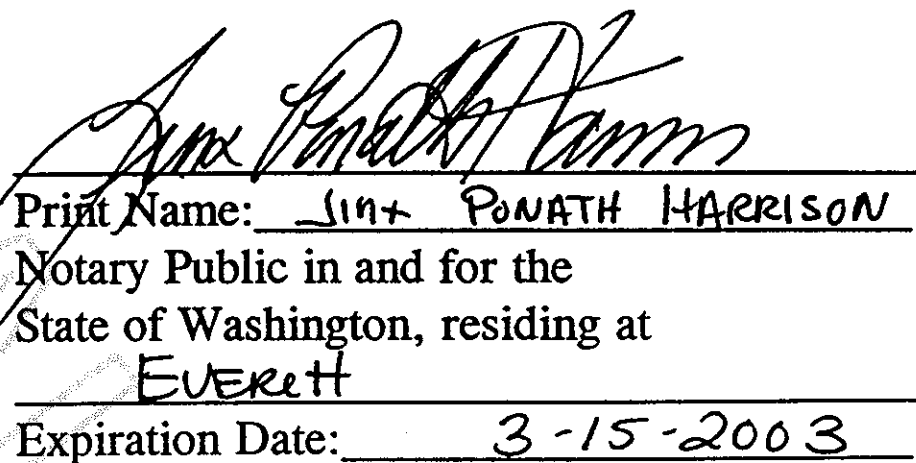 Jinx Ponath Harrison
Print Name: Jinx PONATH HARRISON
Notary Public in and for the
State of Washington, residing at
EVEREtt
Expiration Date: 3-15-2003